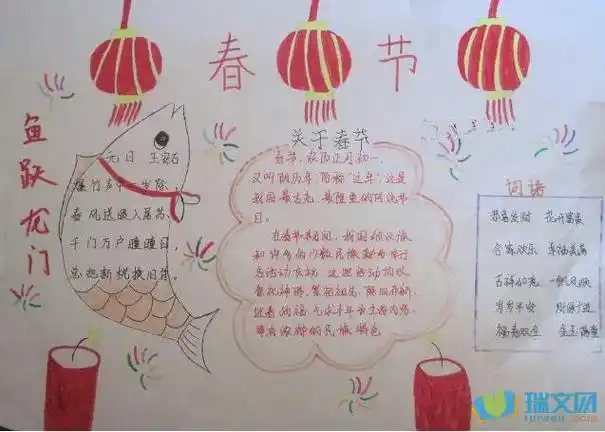 春节
鱼跃龙门
元日 王安石
爆竹声中一岁除,
春风送暖入屠苏,
千门万户曈曈日,
总把新桃换旧符。
关于春节
春节,农历正月初一,
又叫阴历年,俗称“过年”,这是
我国最古老、最隆重的传统节
日。
在春节期间,我国的汉族
和许多的少数民族都要举行
各活动庆祝,这些活动均以
祭祀神佛、祭祖祖先、除旧布新、
迎春纳福、气求丰年为主要内容,
带有浓郁的民族特色
词语
恭喜发财 花开富贵
合家欢乐 幸福美满
吉祥如意 一帆风顺
岁岁平安 财源广进
福寿双全 金玉满堂
瑞文网
ruiwen.com